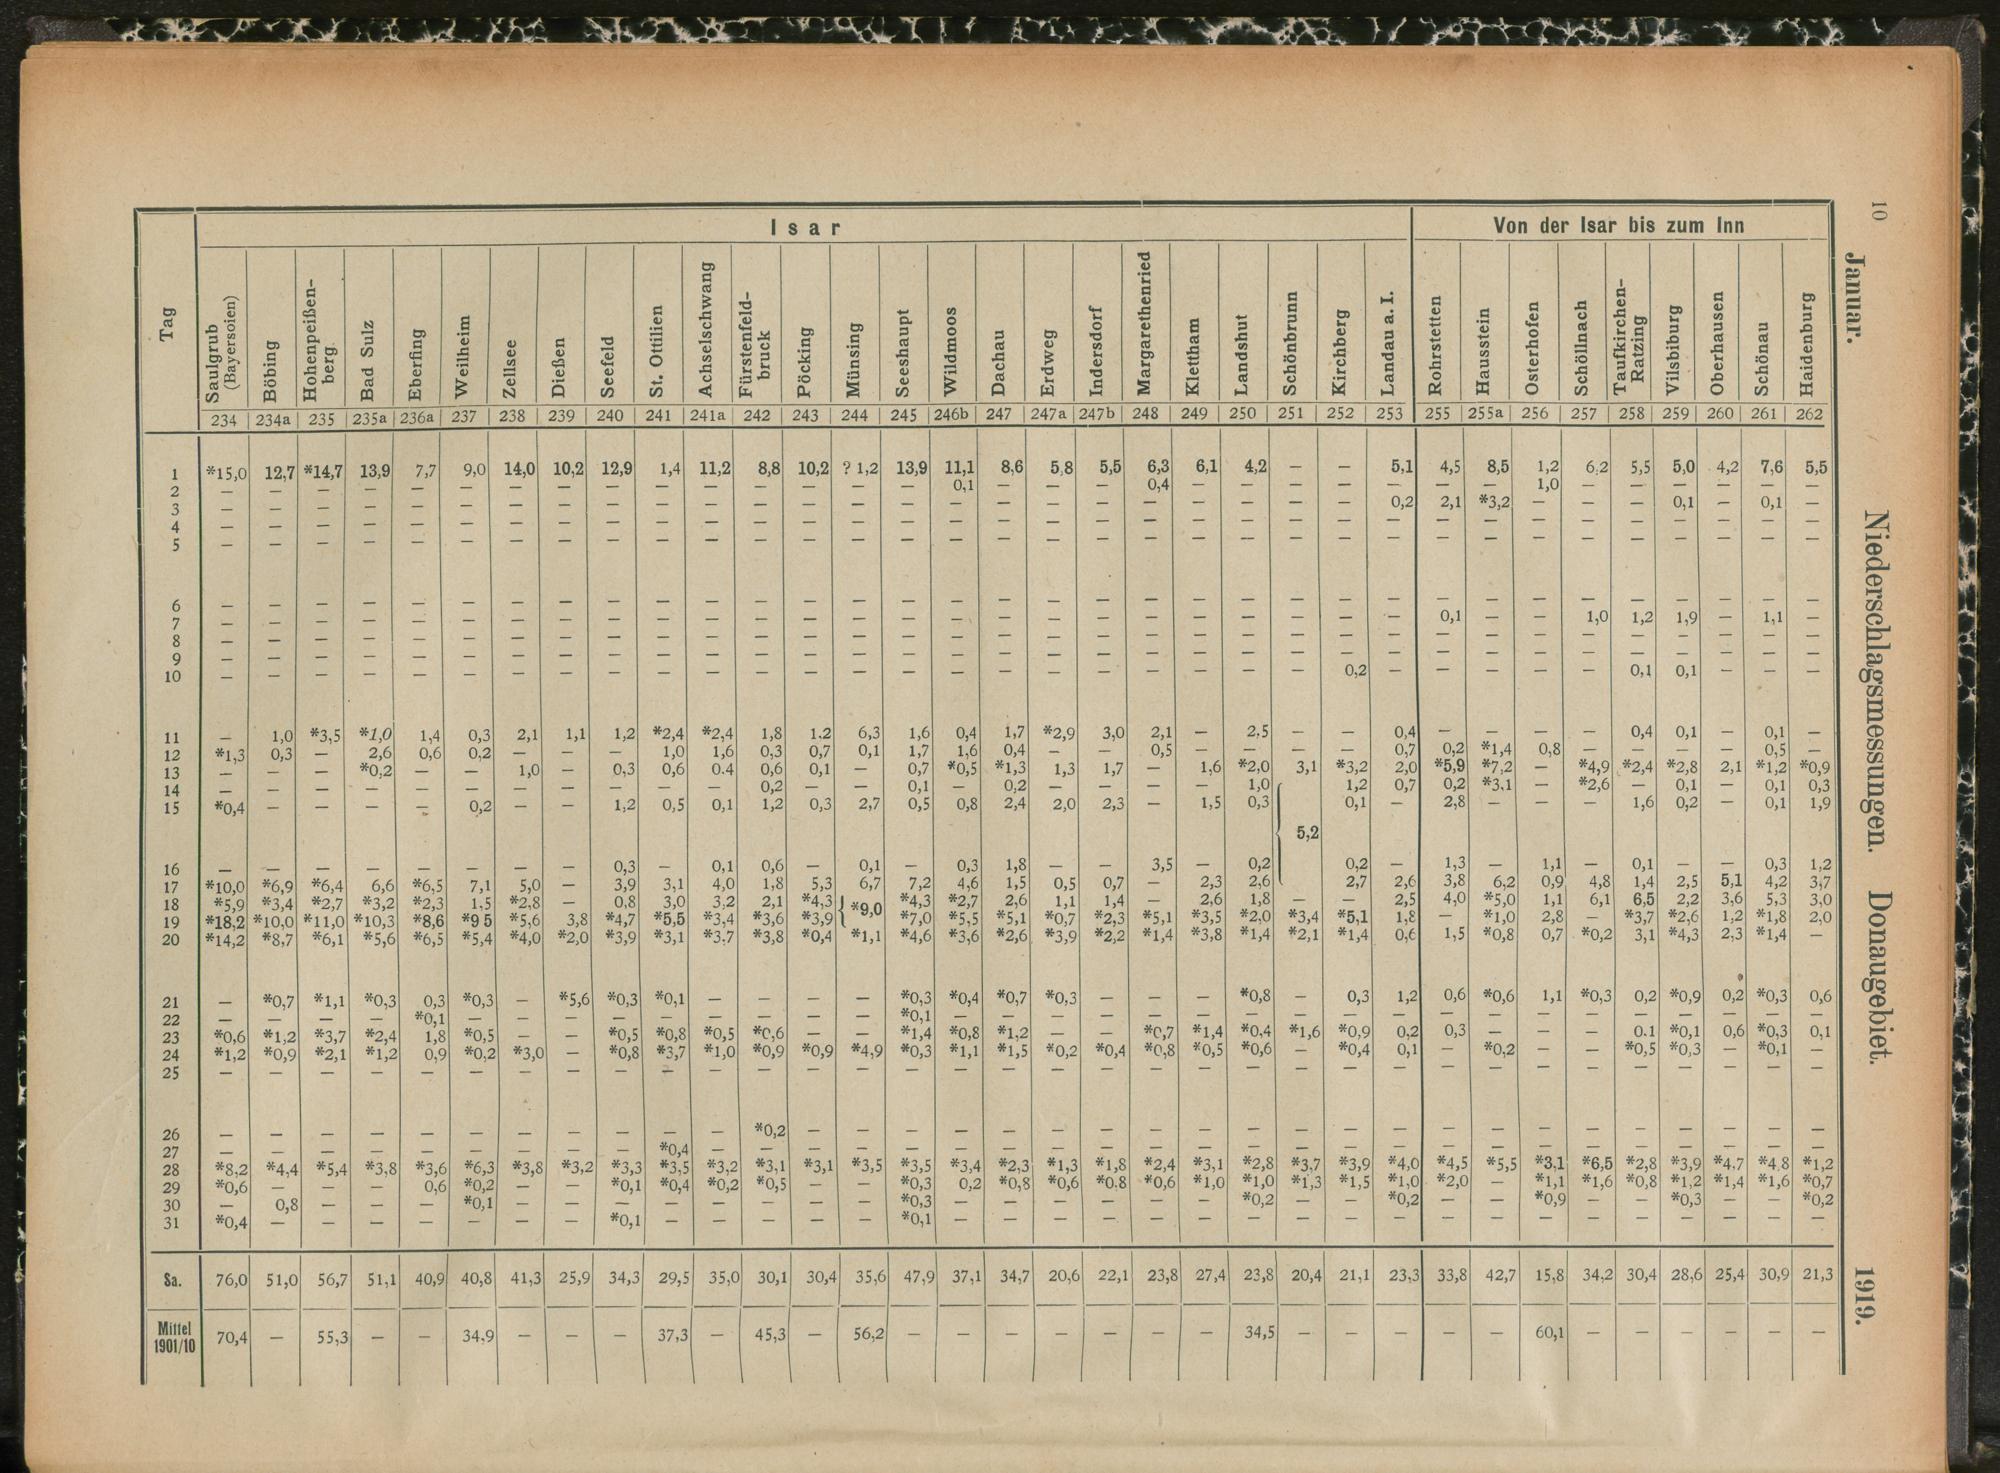 10
Januar. Niederschlagsmessungen. Donaugebiet. 1919.
Isar | Von der Isar bis zum Inn
Tag | Saulgrub (Bayersoien) | Böbing | Hohenpeißen-berg | Bad Sulz | Eberfing | Weilheim | Zellsee | Dießen | Seefeld | St. Ottilien | Achselschwang | Fürstenfeld-bruck | Pöcking | Münsing | Seeshaupt | Wildmoos | Dachau | Erdweg | Indersdorf | Margarethenried | Klettham | Landshut | Schönbrunn | Kirchberg | Landau a. I. | Rohrstetten | Hausstein | Osterhofen | Schöllnach | Taufkirchen-Ratzing | Vilsbiburg | Oberhausen | Schönau | Haidenburg
234 | 234a | 235 | 235a | 236a | 237 | 238 | 239 | 240 | 241 | 241a | 242 | 243 | 244 | 245 | 246b | 247 | 247a | 247b | 248 | 249 | 250 | 251 | 252 | 253 | 255 | 255a | 256 | 257 | 258 | 259 | 260 | 261 | 262
1 | *15,0 | 12,7 | *14,7 | 13,9 | 7,7 | 9,0 | 14,0 | 10,2 | 12,9 | 1,4 | 11,2 | 8,8 | 10,2 | ? 1,2 | 13,9 | 11,1 | 8,6 | 5,8 | 5,5 | 6,3 | 6,1 | 4,2 | — | — | 5,1 | 4,5 | 8,5 | 1,2 | 6,2 | 5,5 | 5,0 | 4,2 | 7,6 | 5,5
2 | — | — | — | — | — | — | — | — | — | — | — | — | — | — | — | 0,1 | — | — | — | 0,4 | — | — | — | — | — | — | — | 1,0 | — | — | — | — | — | —
3 | — | — | — | — | — | — | — | — | — | — | — | — | — | — | — | — | — | — | — | — | — | — | — | — | 0,2 | 2,1 | *3,2 | — | — | — | 0,1 | — | 0,1 | —
4 | — | — | — | — | — | — | — | — | — | — | — | — | — | — | — | — | — | — | — | — | — | — | — | — | — | — | — | — | — | — | — | — | — | —
5 | — | — | — | — | — | — | — | — | — | — | — | — | — | — | — | — | — | — | — | — | — | — | — | — | — | — | — | — | — | — | — | — | — | —
6 | — | — | — | — | — | — | — | — | — | — | — | — | — | — | — | — | — | — | — | — | — | — | — | — | — | — | — | — | — | — | — | — | — | —
7 | — | — | — | — | — | — | — | — | — | — | — | — | — | — | — | — | — | — | — | — | — | — | — | — | — | 0,1 | — | — | 1,0 | 1,2 | 1,9 | — | 1,1 | —
8 | — | — | — | — | — | — | — | — | — | — | — | — | — | — | — | — | — | — | — | — | — | — | — | — | — | — | — | — | — | — | — | — | — | —
9 | — | — | — | — | — | — | — | — | — | — | — | — | — | — | — | — | — | — | — | — | — | — | — | — | — | — | — | — | — | — | — | — | — | —
10 | — | — | — | — | — | — | — | — | — | — | — | — | — | — | — | — | — | — | — | — | — | — | — | 0,2 | — | — | — | — | — | 0,1 | 0,1 | — | — | —
11 | — | 1,0 | *3,5 | *1,0 | 1,4 | 0,3 | 2,1 | 1,1 | 1,2 | *2,4 | *2,4 | 1,8 | 1.2 | 6,3 | 1,6 | 0,4 | 1,7 | *2,9 | 3,0 | 2,1 | — | 2,5 | — | — | 0,4 | — | — | — | — | 0,4 | 0,1 | — | 0,1 | —
12 | *1,3 | 0,3 | — | 2,6 | 0,6 | 0,2 | — | — | — | 1,0 | 1,6 | 0,3 | 0,7 | 0,1 | 1,7 | 1,6 | 0,4 | — | — | 0,5 | — | — | — | — | 0,7 | 0,2 | *1,4 | 0,8 | — | — | — | — | 0,5 | —
13 | — | — | — | *0,2 | — | — | 1,0 | — | 0,3 | 0,6 | 0.4 | 0,6 | 0,1 | — | 0,7 | *0,5 | *1,3 | 1,3 | 1,7 | — | 1,6 | *2,0 | 3,1 | *3,2 | 2,0 | *5,9 | *7,2 | — | *4,9 | *2,4 | *2,8 | 2,1 | *1,2 | *0,9
14 | — | — | — | — | — | — | — | — | — | — | — | 0,2 | — | — | 0,1 | — | 0,2 | — | — | — | — | 1,0 | { | 1,2 | 0,7 | 0,2 | *3,1 | — | *2,6 | — | 0,1 | — | 0,1 | 0,3
15 | *0,4 | — | — | — | — | 0,2 | — | — | 1,2 | 0,5 | 0,1 | 1,2 | 0,3 | 2,7 | 0,5 | 0,8 | 2,4 | 2,0 | 2,3 | — | 1,5 | 0,3 | 5,2 | 0,1 | — | 2,8 | — | — | — | 1,6 | 0,2 | — | 0,1 | 1,9
16 | — | — | — | — | — | — | — | — | 0,3 | — | 0,1 | 0,6 | — | 0,1 | — | 0,3 | 1,8 | — | — | 3,5 | — | 0,2 | | 0,2 | — | 1,3 | — | 1,1 | — | 0,1 | — | — | 0,3 | 1,2
17 | *10,0 | *6,9 | *6,4 | 6,6 | *6,5 | 7,1 | 5,0 | — | 3,9 | 3,1 | 4,0 | 1,8 | 5,3 | 6,7 | 7,2 | 4,6 | 1,5 | 0,5 | 0,7 | — | 2,3 | 2,6 | | 2,7 | 2,6 | 3,8 | 6,2 | 0,9 | 4,8 | 1,4 | 2,5 | 5,1 | 4,2 | 3,7
18 | *5,9 | *3,4 | *2,7 | *3,2 | *2,3 | 1,5 | *2,8 | — | 0,8 | 3,0 | 3,2 | 2,1 | *4,3 | { *9,0 | *4,3 | *2,7 | 2,6 | 1,1 | 1,4 | — | 2,6 | 1,8 | — | — | 2,5 | 4,0 | *5,0 | 1,1 | 6,1 | 6,5 | 2,2 | 3,6 | 5,3 | 3,0
19 | *18,2 | *10,0 | *11,0 | *10,3 | *8,6 | *9 5 | *5,6 | 3,8 | *4,7 | *5,5 | *3,4 | *3,6 | *3,9 | | *7,0 | *5,5 | *5,1 | *0,7 | *2,3 | *5,1 | *3,5 | *2,0 | *3,4 | *5,1 | 1,8 | — | *1,0 | 2,8 | — | *3,7 | *2,6 | 1,2 | *1,8 | 2,0
20 | *14,2 | *8,7 | *6,1 | *5,6 | *6,5 | *5,4 | *4,0 | *2,0 | *3,9 | *3,1 | *3,7 | *3,8 | *0,4 | *1,1 | *4,6 | *3,6 | *2,6 | *3,9 | *2,2 | *1,4 | *3,8 | *1,4 | *2,1 | *1,4 | 0,6 | 1,5 | *0,8 | 0,7 | *0,2 | 3,1 | *4,3 | 2,3 | *1,4 | —
21 | — | *0,7 | *1,1 | *0,3 | 0,3 | *0,3 | — | *5,6 | *0,3 | *0,1 | — | — | — | — | *0,3 | *0,4 | *0,7 | *0,3 | — | — | — | *0,8 | — | 0,3 | 1,2 | 0,6 | *0,6 | 1,1 | *0,3 | 0,2 | *0,9 | 0,2 | *0,3 | 0,6
22 | — | — | — | — | *0,1 | — | — | — | — | — | — | — | — | — | *0,1 | — | — | — | — | — | — | — | — | — | — | — | — | — | — | — | — | — | — | —
23 | *0,6 | *1,2 | *3,7 | *2,4 | 1,8 | *0,5 | — | — | *0,5 | *0,8 | *0,5 | *0,6 | — | — | *1,4 | *0,8 | *1,2 | — | — | *0,7 | *1,4 | *0,4 | *1,6 | *0,9 | 0,2 | 0,3 | — | — | — | 0.1 | *0,1 | 0,6 | *0,3 | 0,1
24 | *1,2 | *0,9 | *2,1 | *1,2 | 0,9 | *0,2 | *3,0 | — | *0,8 | *3,7 | *1,0 | *0,9 | *0,9 | *4,9 | *0,3 | *1,1 | *1,5 | *0,2 | *0,4 | *0,8 | *0,5 | *0,6 | — | *0,4 | 0,1 | — | *0,2 | — | — | *0,5 | *0,3 | — | *0,1 | —
25 | — | — | — | — | — | — | — | — | — | — | — | — | — | — | — | — | — | — | — | — | — | — | — | — | — | — | — | — | — | — | — | — | — | —
26 | — | — | — | — | — | — | — | — | — | — | — | *0,2 | — | — | — | — | — | — | — | — | — | — | — | — | — | — | — | — | — | — | — | — | — | —
27 | — | — | — | — | — | — | — | — | — | *0,4 | — | — | — | — | — | — | — | — | — | — | — | — | — | — | — | — | — | — | — | — | — | — | — | —
28 | *8,2 | *4,4 | *5,4 | *3,8 | *3,6 | *6,3 | *3,8 | *3,2 | *3,3 | *3,5 | *3,2 | *3,1 | *3,1 | *3,5 | *3,5 | *3,4 | *2,3 | *1,3 | *1,8 | *2,4 | *3,1 | *2,8 | *3,7 | *3,9 | *4,0 | *4,5 | *5,5 | *3,1 | *6,5 | *2,8 | *3,9 | *4,7 | *4,8 | *1,2
29 | *0,6 | — | — | — | 0,6 | *0,2 | — | — | *0,1 | *0,4 | *0,2 | *0,5 | — | — | *0,3 | 0,2 | *0,8 | *0,6 | *0,8 | *0,6 | *1,0 | *1,0 | *1,3 | *1,5 | *1,0 | *2,0 | — | *1,1 | *1,6 | *0,8 | *1,2 | *1,4 | *1,6 | *0,7
30 | — | 0,8 | — | — | — | *0,1 | — | — | — | — | — | — | — | — | *0,3 | — | — | — | — | — | — | *0,2 | — | — | *0,2 | — | — | *0,9 | — | — | *0,3 | — | — | *0,2
31 | *0,4 | — | — | — | — | — | — | — | *0,1 | — | — | — | — | — | *0,1 | — | — | — | — | — | — | — | — | — | — | — | — | — | — | — | — | — | — | —
Sa. | 76,0 | 51,0 | 56,7 | 51,1 | 40,9 | 40,8 | 41,3 | 25,9 | 34,3 | 29,5 | 35,0 | 30,1 | 30,4 | 35,6 | 47,9 | 37,1 | 34,7 | 20,6 | 22,1 | 23,8 | 27,4 | 23,8 | 20,4 | 21,1 | 23,3 | 33,8 | 42,7 | 15,8 | 34,2 | 30,4 | 28,6 | 25,4 | 30,9 | 21,3
Mittel 1901/10 | 70,4 | — | 55,3 | — | — | 34,9 | — | — | — | 37,3 | — | 45,3 | — | 56,2 | — | — | — | — | — | — | — | 34,5 | — | — | — | — | — | 60,1 | — | — | — | — | — | —